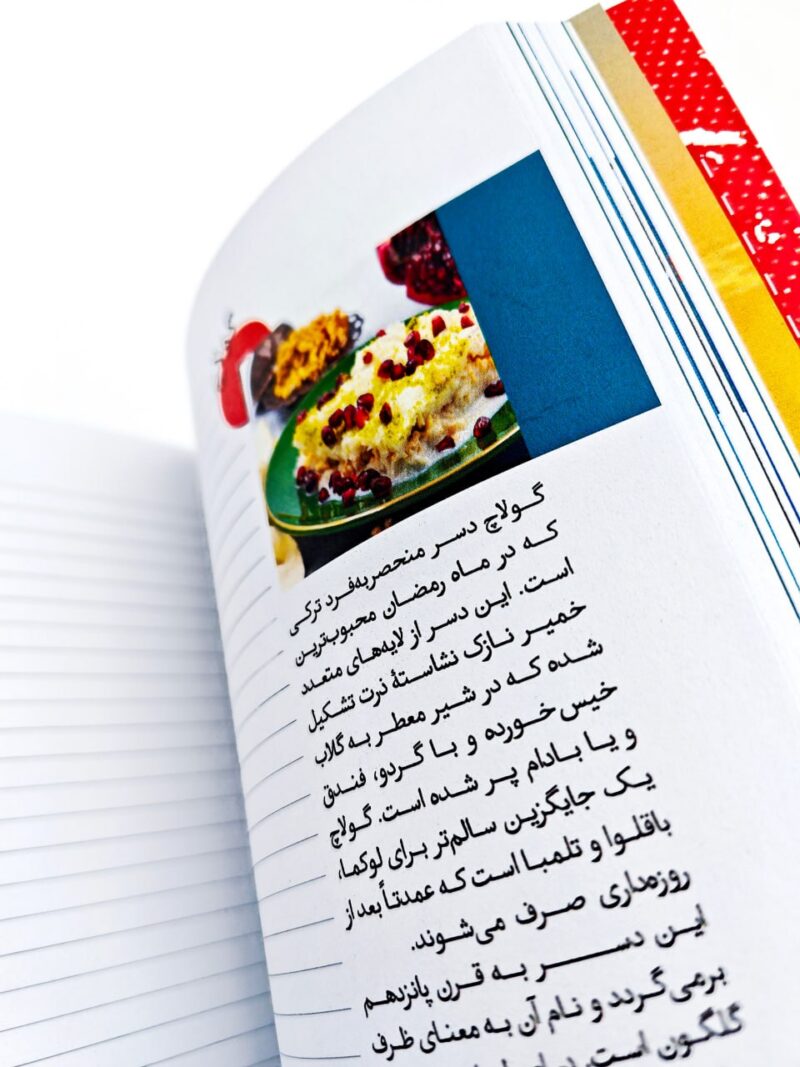 گولاچ دسر منحصربه‌فرد ترکی
که در ماه رمضان محبوب‌ترین
است. این دسر از لایه‌های متعدد
خمیر نازک نشاستهٔ ذرت تشکیل
شده که در شیر معطر به گلاب
خیس‌خورده و با گردو، فندق
و یا بادام پر شده است. گولاچ
یک جایگزین سالم‌تر برای لوکما،
باقلوا و تلمبا است که عمدتاً بعد از
روزه‌داری صرف می‌شوند.
این دسر به قرن پانزدهم
برمی‌گردد و نام آن به معنای ظرف
گلگون است.